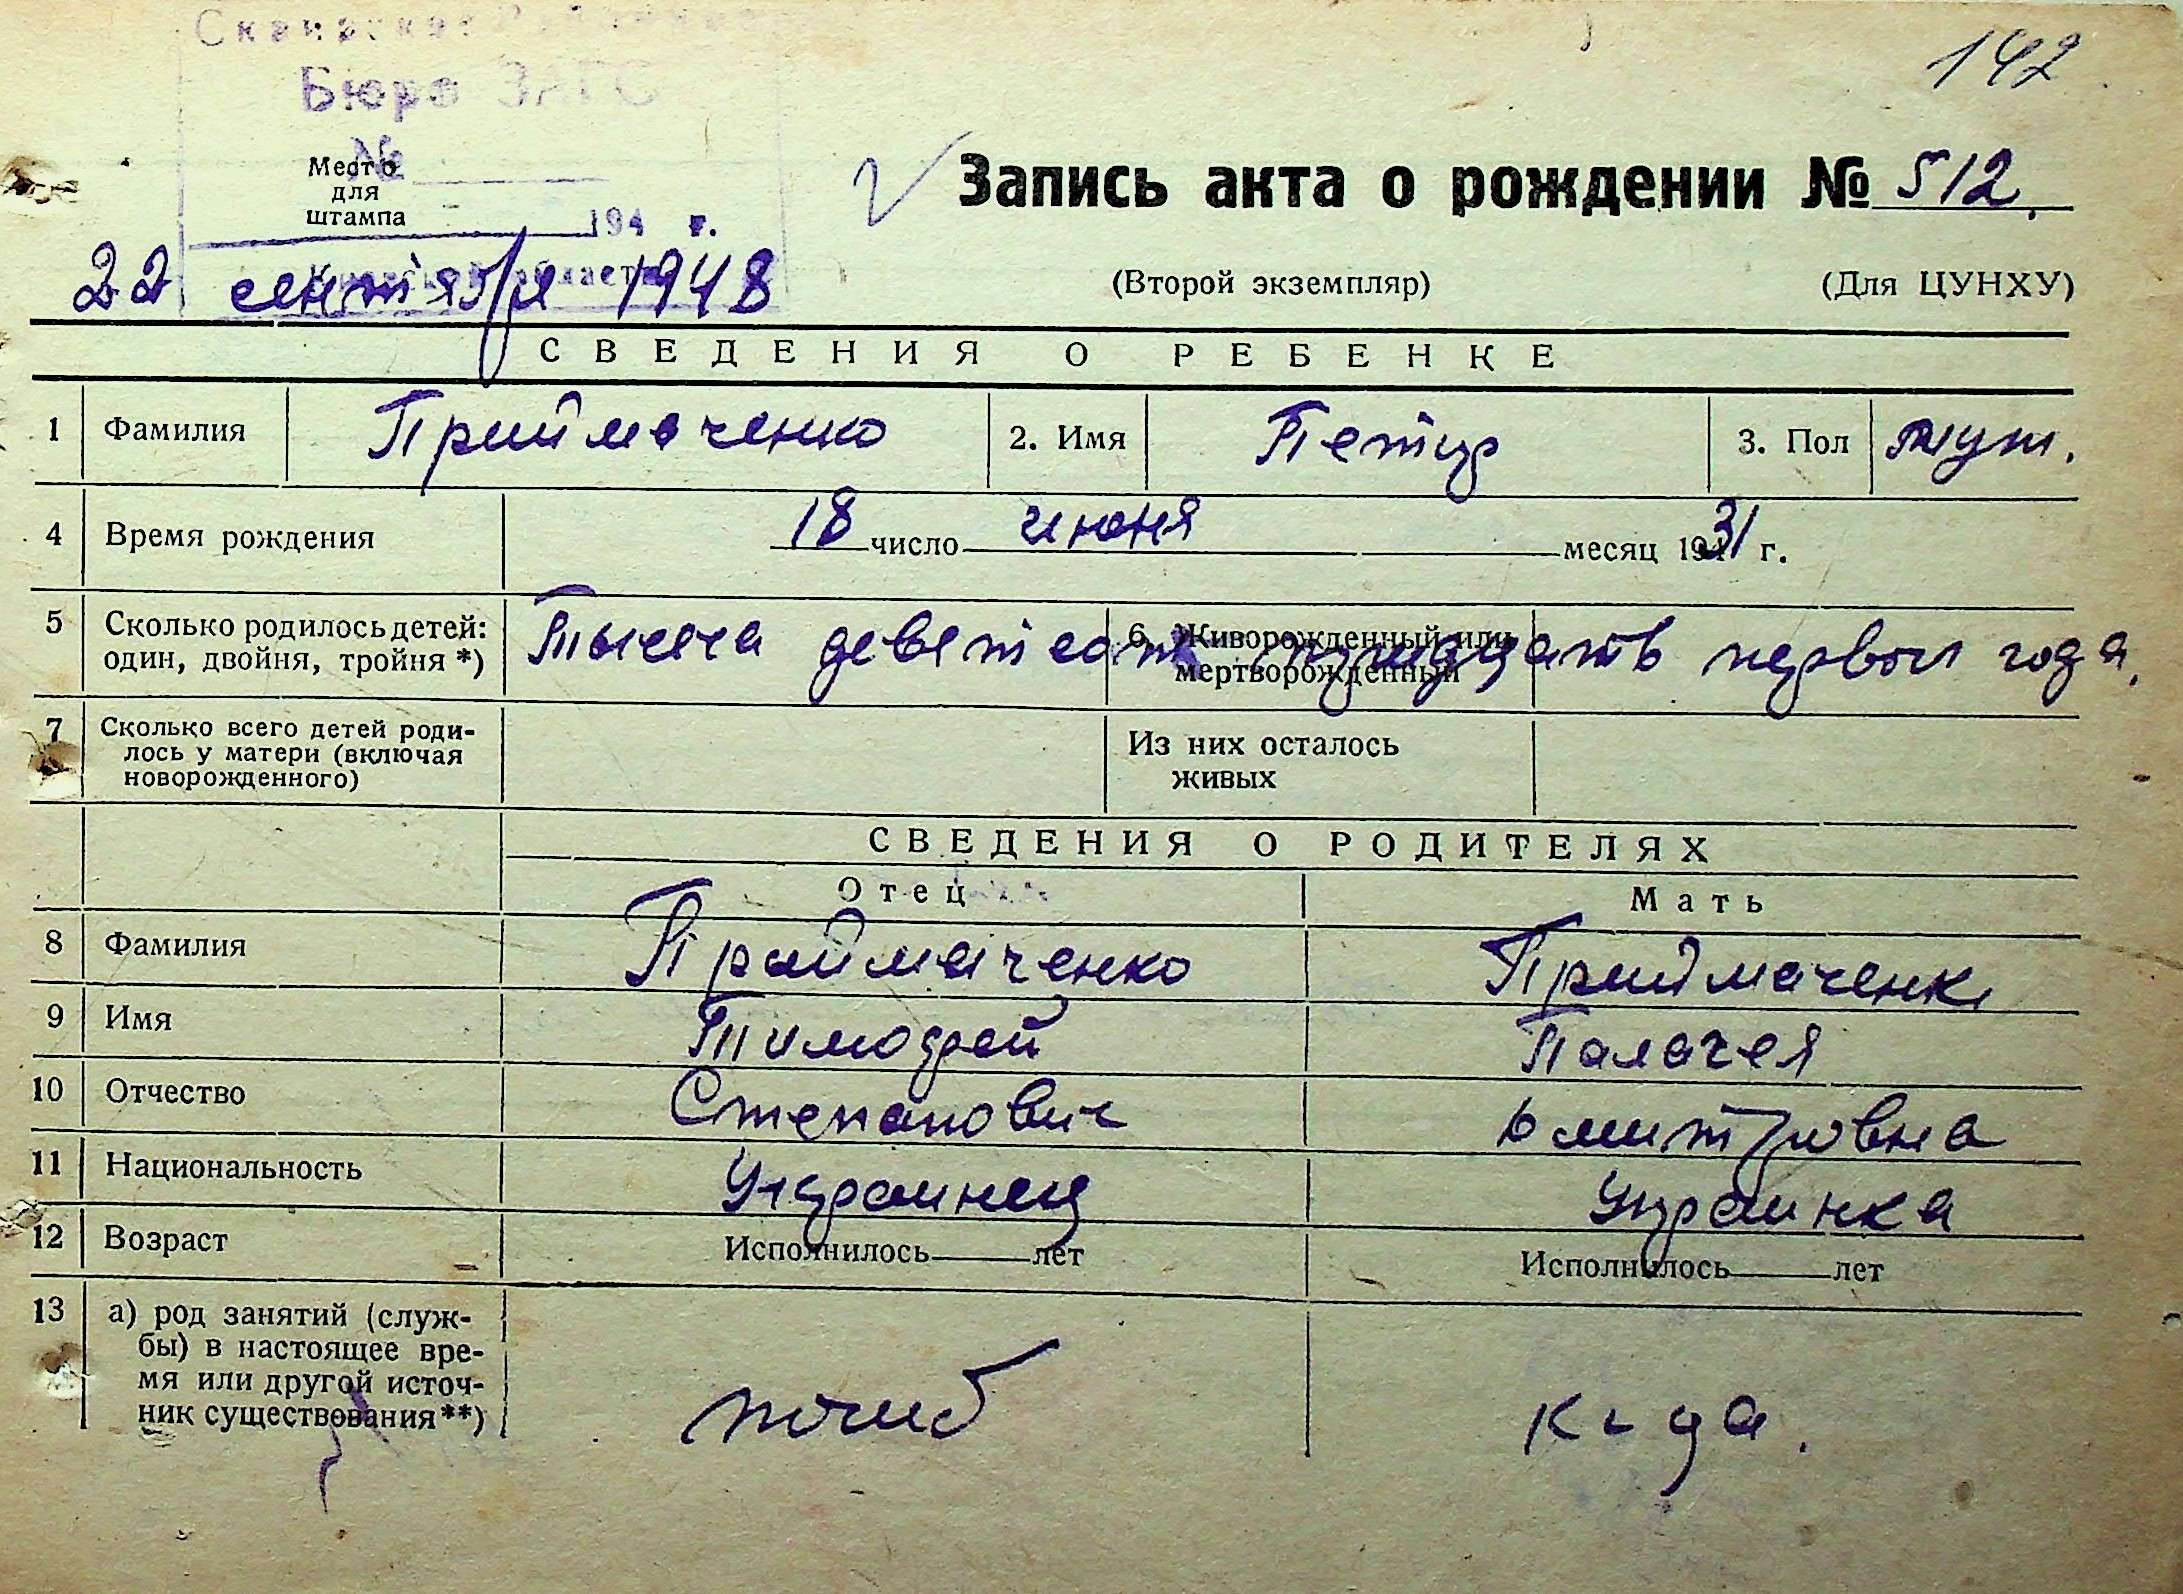 142
Бюро ЗАГС
№
Место
для
штампа
194 г.
Запись акта о рождении № 512.
22 сентября 1948
(Второй экземпляр) (Для ЦУНХУ)
СВЕДЕНИЯ О РЕБЕНКЕ
1 Фамилия Приймаченко 2. Имя Петр 3. Пол муж.
4 Время рождения 18 число июня месяц 1931 г.
5 Сколько родилось детей: один, двойня, тройня *) 6. Живорожденный или мертворожденный
Тысяча девятсот тридцать первого года.
7 Сколько всего детей роди-
лось у матери (включая
новорожденного)
Из них осталось
живых
СВЕДЕНИЯ О РОДИТЕЛЯХ
Отец Мать
8 Фамилия Приймаченко Приймаченк
9 Имя Тимофей Палагея
10 Отчество Степанович Дмитровна
11 Национальность Украинец Украинка
12 Возраст Исполнилось лет Исполнилось лет
13 а) род занятий (служ-
бы) в настоящее вре-
мя или другой источ-
ник существования**)
погиб